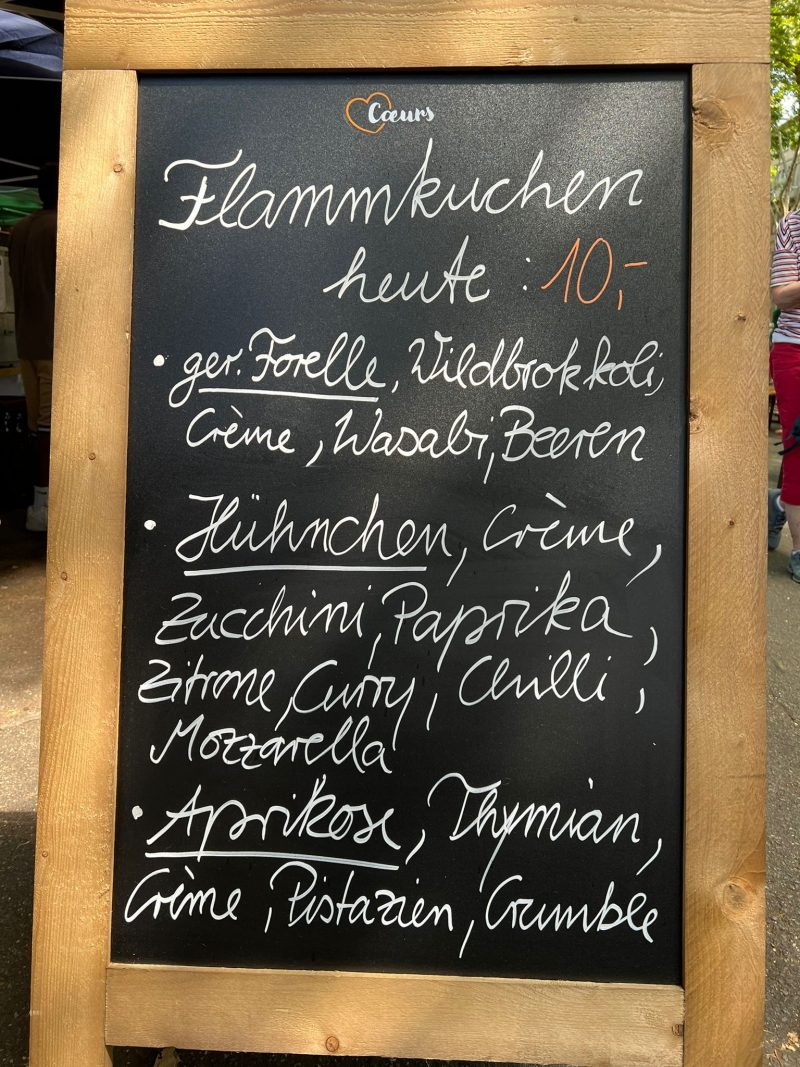 Cœurs
Flammkuchen
heute : 10,-
• ger. Forelle, Wildbrokkoli,
Crème, Wasabi, Beeren
• Hühnchen, Crème,
Zucchini, Paprika,
Zitrone, Curry, Chilli,
Mozzarella
• Aprikose, Thymian,
Crème, Pistazien, Crumble